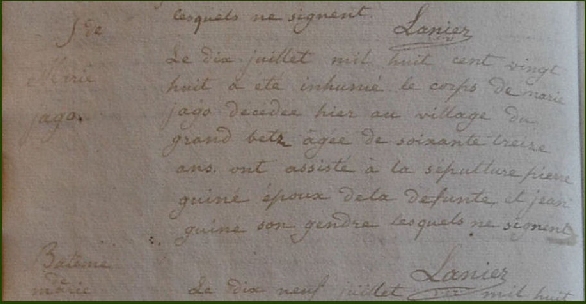 lesquels ne signent
Lanier
Sre
Marie
jago
Le dix juillet mil huit cent vingt
huit a été inhumé le corps de marie
jago decedée hier au village du
grand betz âgée de soixante treize
ans, ont assisté à la sepulture pierre
guiné époux dela defunte et jean
guiné son gendre lesquels ne signent
Lanier
Batême
marie
Le dix neuf juillet mil huit